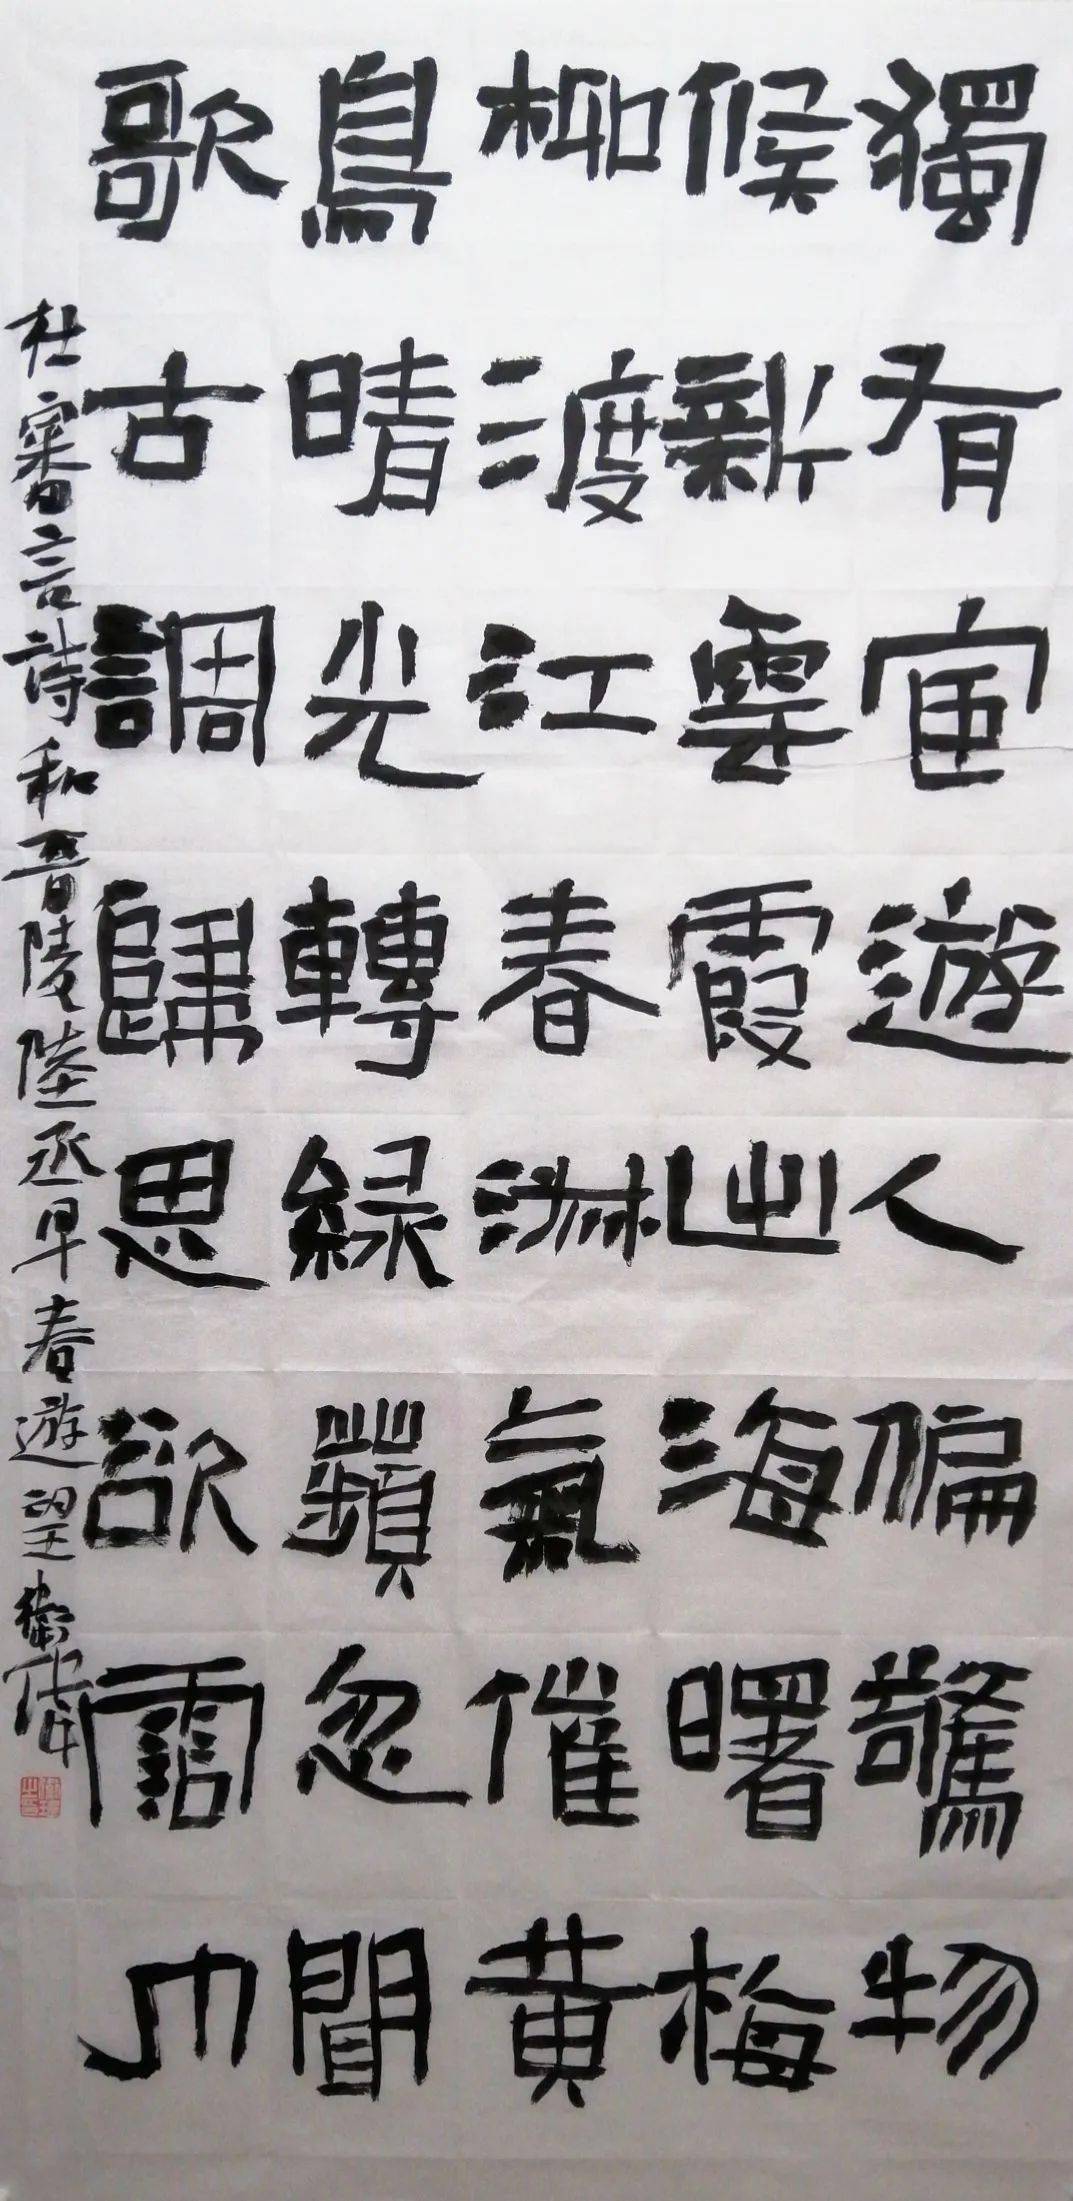 獨有宦遊人偏驚物
候新雲霞出海曙梅
柳渡江春淑氣催黄
鳥晴光轉綠蘋忽聞
歌古調歸思欲霑巾
杜審言詩和晉陵陸丞早春遊望